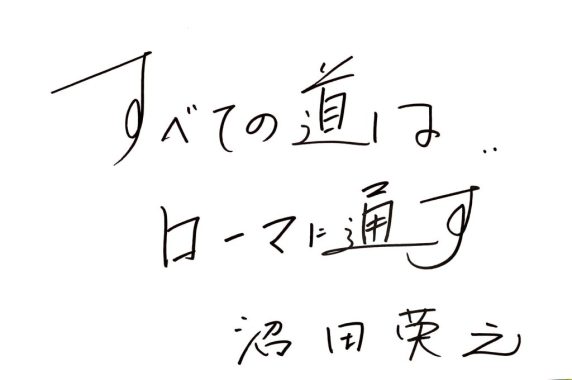 すべての道は‥
ローマに通す
沼田英之